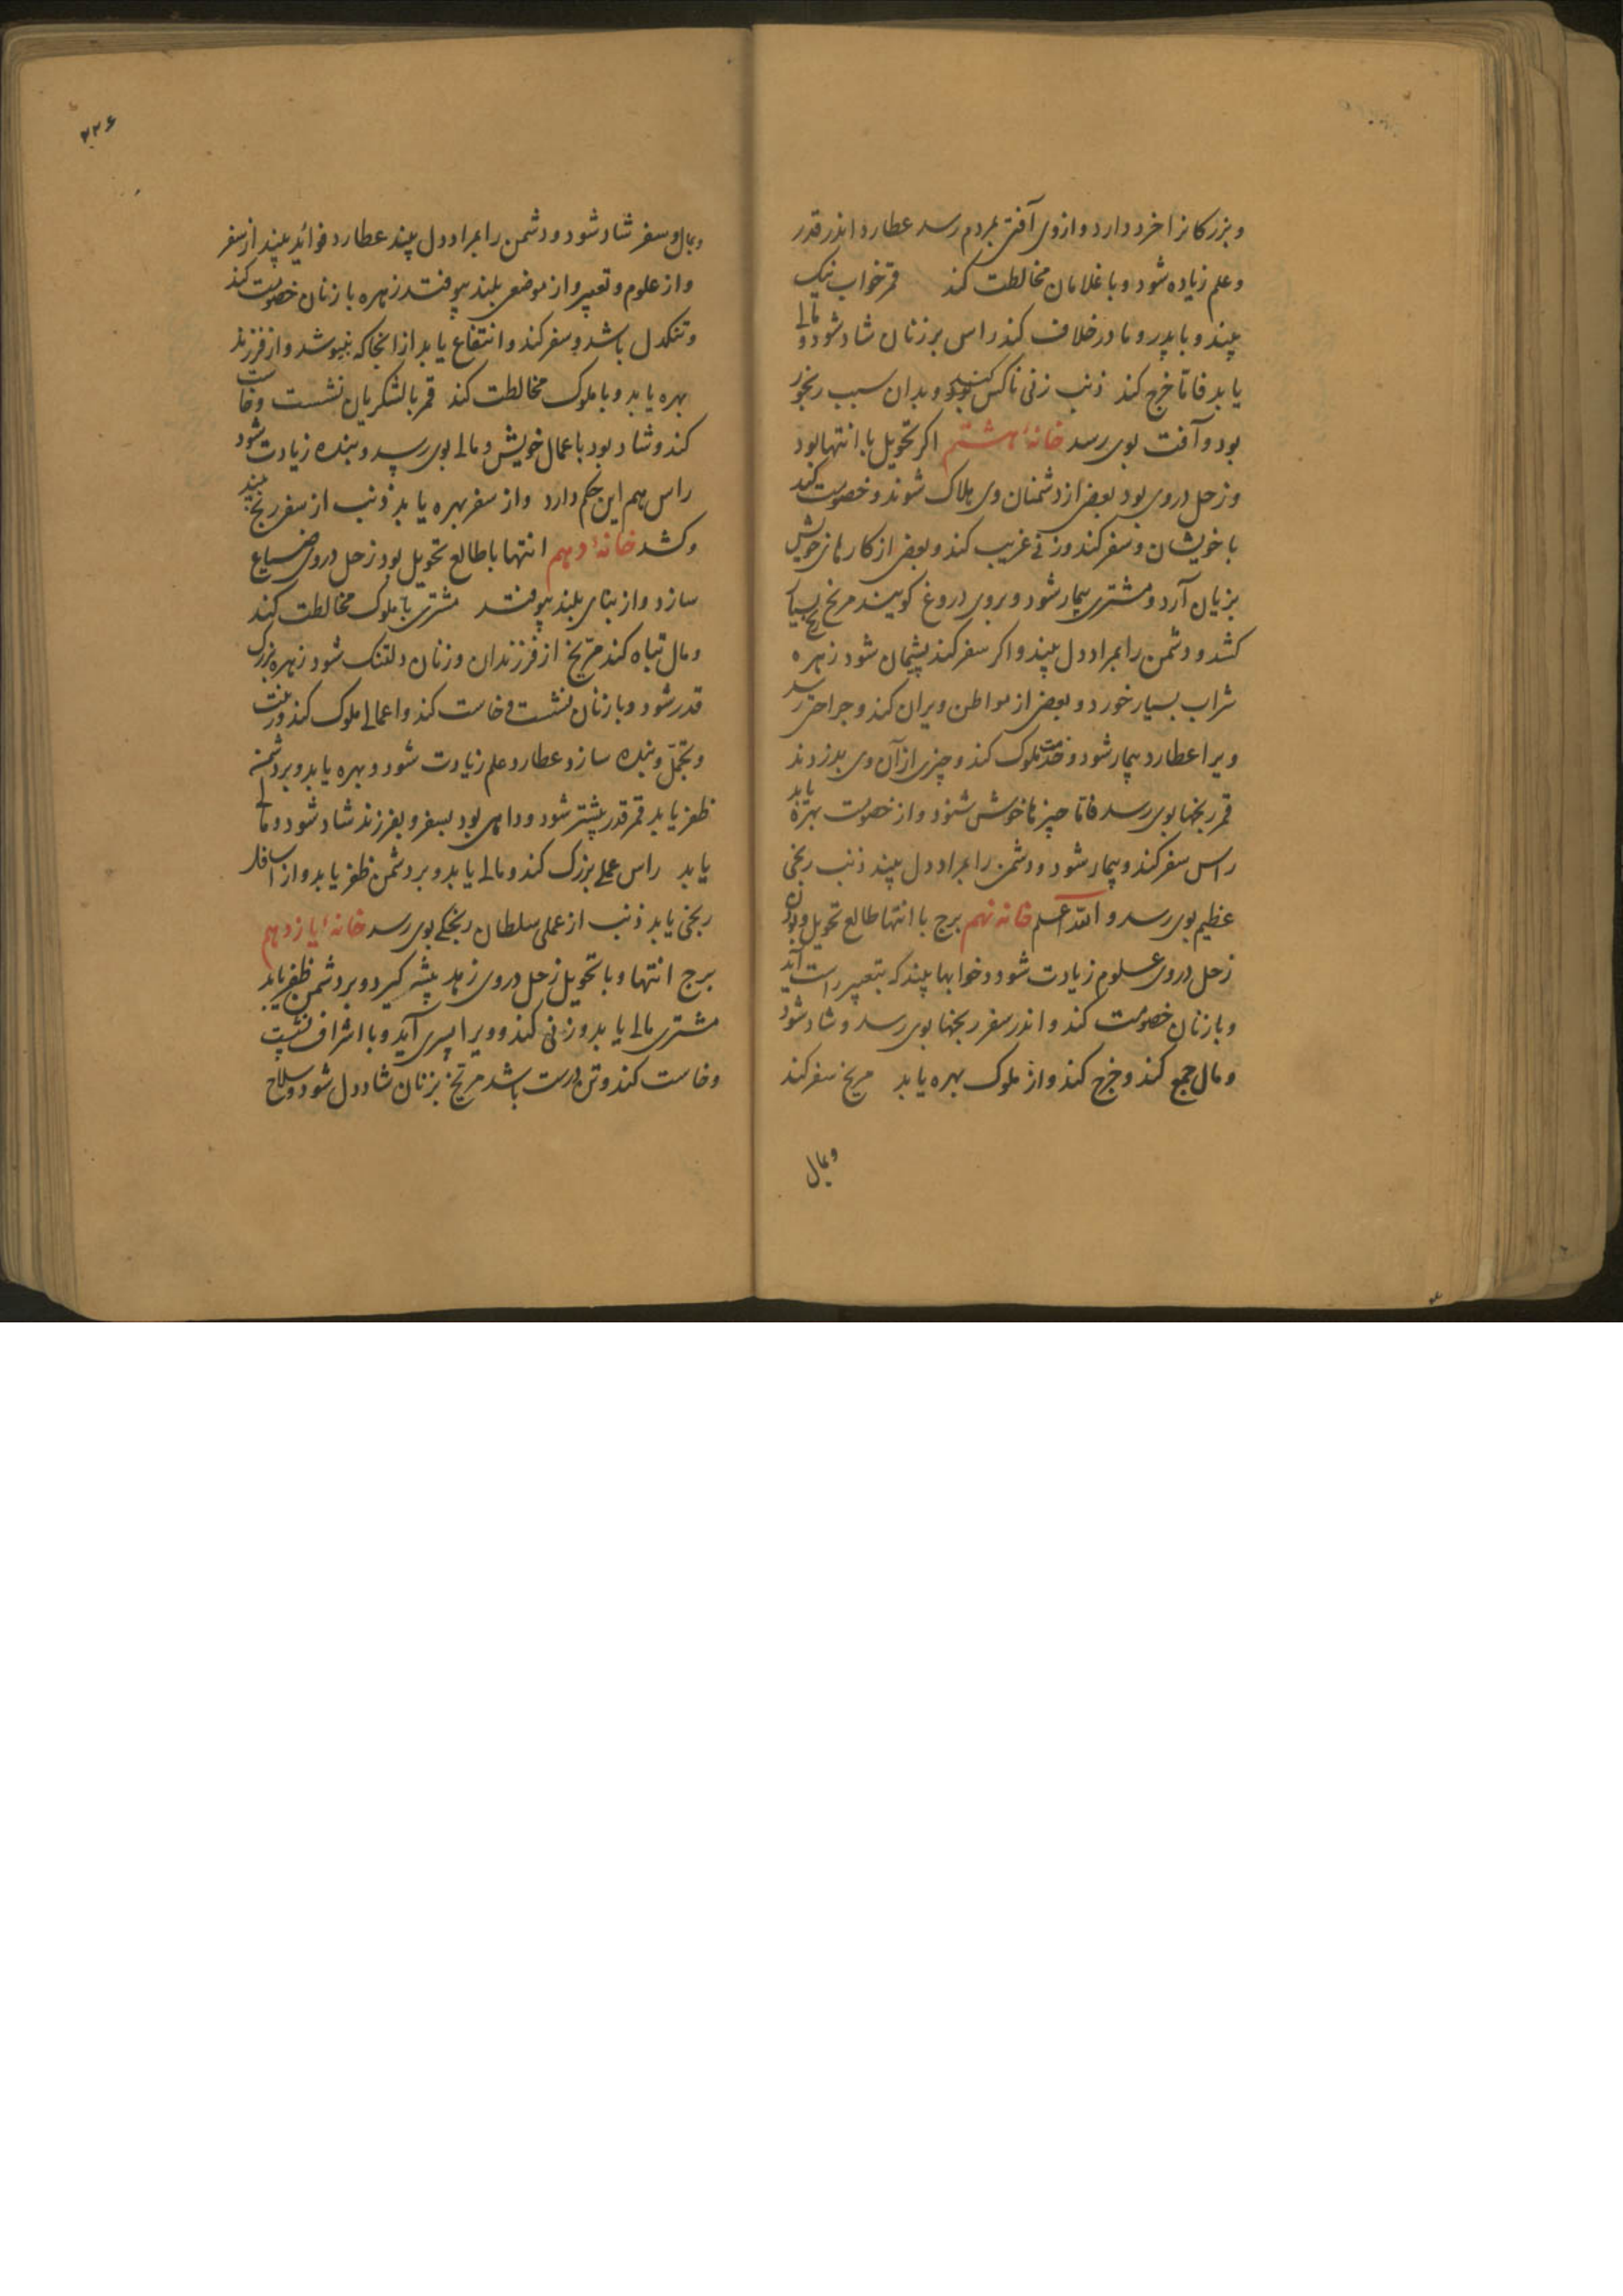 وبزرکانرا خرد دارد و ازوی آفتی بمردم رسد عطارد اندر قدر
و علم زیاده شود و با غلامان مخالطت کند قمر خواب نیک
بیند و با پدر و مادر خلاف کند راس بر زنان شاد شود و مالی
یابد فاتا خرج کند ذنب زنی ناکس کند و بدان سبب رنجور
بود و آفت بوی رسد خانهٔ هشتم اکر تحویل با انتها بود
و زحل دروی بود بعضی از دشمنان وی هلاک شوند و خصومت کند
با خویشان و سفر کند و زنی غریب کند و بعضی از کارهای خویش
بزیان آرد و مشتری بیمار شود و بروی دروغ کویند مریخ رنج بسیار
کشد و دشمن را بمراد دل بیند و اکر سفر کند پشیمان شود زهره
شراب بسیار خورد و بعضی از مواطن ویران کند و جراحتی رسد
ویرا عطارد بیمار شود و خدمت ملوک کند و چیزی از آن وی بدزدند
قمر رنجها بوی رسد فاتا چیزها خوش شنود و از خصومت بهره یابد
راس سفر کند و بیمار شود و دشمن را بمراد دل بیند ذنب رنجی
عظیم بوی رسد و الله اعلم خانه نهم برج با انتها طالع تحویل بود
زحل دروی علوم زیادت شود و خوابها بیند که بتعبیر راست آید
و با زنان خصومت کند و اندر سفر رنجها بوی رسد و شاد شود
و مال جمع کند و خرج کند و از ملوک بهره یابد مریخ سفر کند
وبمال
۲۲۶
وبمال و سفر شاد شود و دشمن را بمراد دل بیند عطارد فوائد بیند از سفر
و از علوم و تعبیر و از موضعی بلند بیوفتد زهره با زنان خصومت کند
و تنکدل باشد و سفر کند و انتفاع یابد از انجا که نیوشد و از فرزند
بهره یابد و با ملوک مخالطت کند قمر بالشکریان نشست و خاست
کند و شاد بود با عمال خویش و مالی بوی رسد و بنده زیادت شود
راس هم این حکم دارد و از سفر بهره یابد ذنب از سفر رنج بیند
و کشد خانهٔ دهم انتها با طالع تحویل بود زحل دروی ضیاع
سازد و از بنای بلند بیوفتد مشتری با ملوک مخالطت کند
و مال تباه کند مریخ از فرزندان و زنان دلتنک شود زهره بزرک
قدر شود و با زنان نشست و خاست کند و اعمالی ملوک کند و زینت
و تجمل و بنده سازد عطارد علم زیادت شود و بهره یابد و بر دشمن
ظفر یابد قمر قدر بیشتر شود و داهی بود بسفر و بفرزند شاد شود و مالی
یابد راس عملی بزرک کند و مالی یابد و بر دشمن ظفر یابد و از اسافل
رنجی یابد ذنب از عملی سلطان رنجکی بوی رسد خانهٔ یازدهم
برج انتها و با تحویل زحل دروی زهد پیشه کیرد و بر دشمن ظفر یابد
مشتری مالی یابد و زنی کند و ویرا پسری آید و با اشراف نشست
و خاست کند و تن درست باشد مریخ بزنان شاددل شود و سلاح